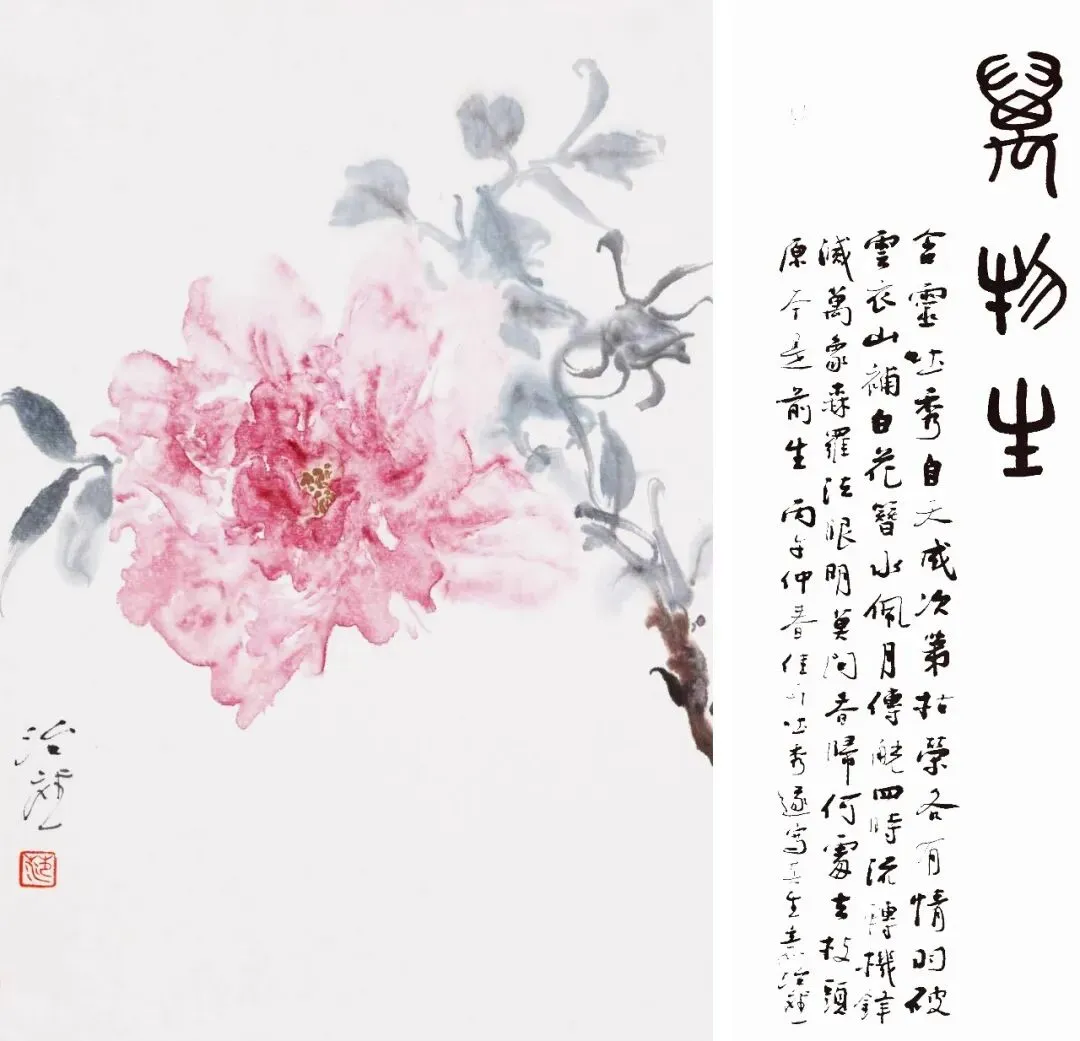 萬物生
含靈吐秀自天成次第枯榮各有情羽破
雲衣山補白花簪水佩月傳觥四時流轉機鋒
滅萬象森羅法眼明莫問春歸何處去枝頭
原本是前生丙午仲春佳卉吐秀遂寫其生意治
治